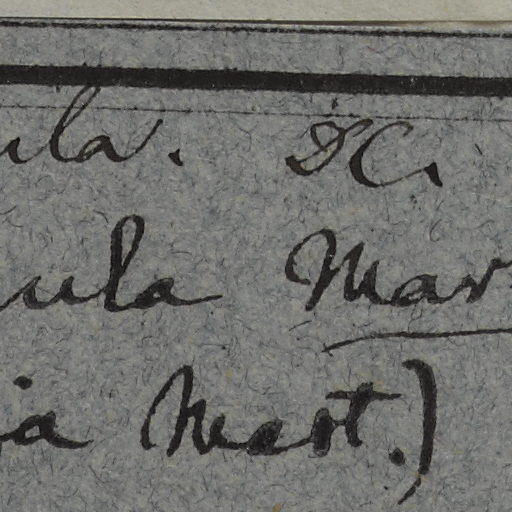 ula. DC.
ula Mar
ia Mart.)